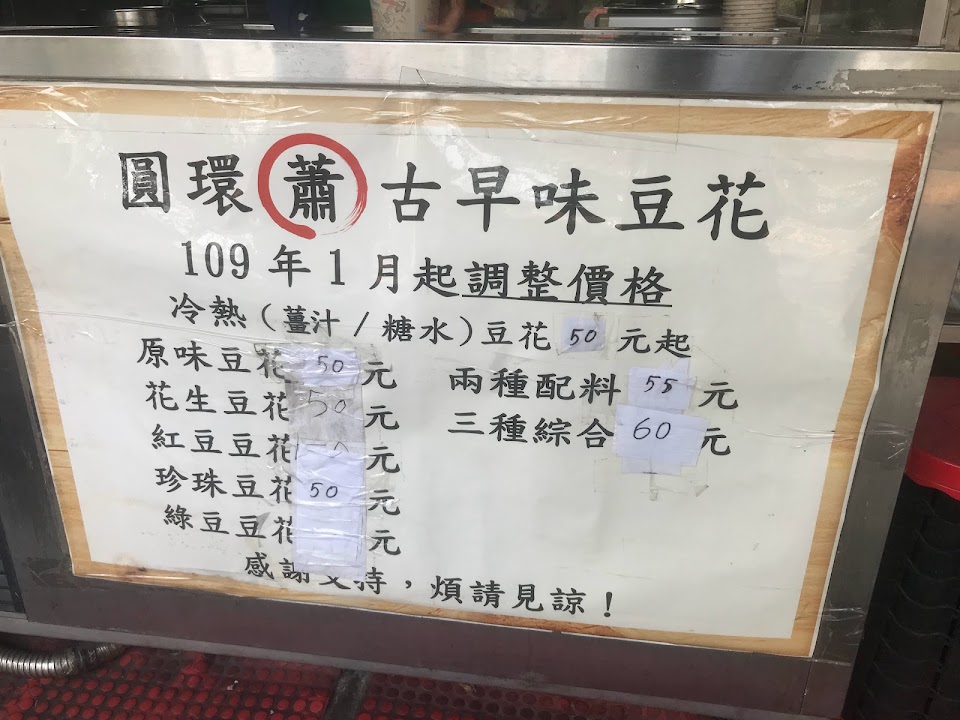 圓環蕭古早味豆花
109年1月起調整價格
冷熱(薑汁/糖水)豆花50元起
原味豆花50元
花生豆花50元
紅豆豆花 元
珍珠豆花50元
綠豆豆花 元
兩種配料55元
三種綜合60元
感謝支持，煩請見諒！